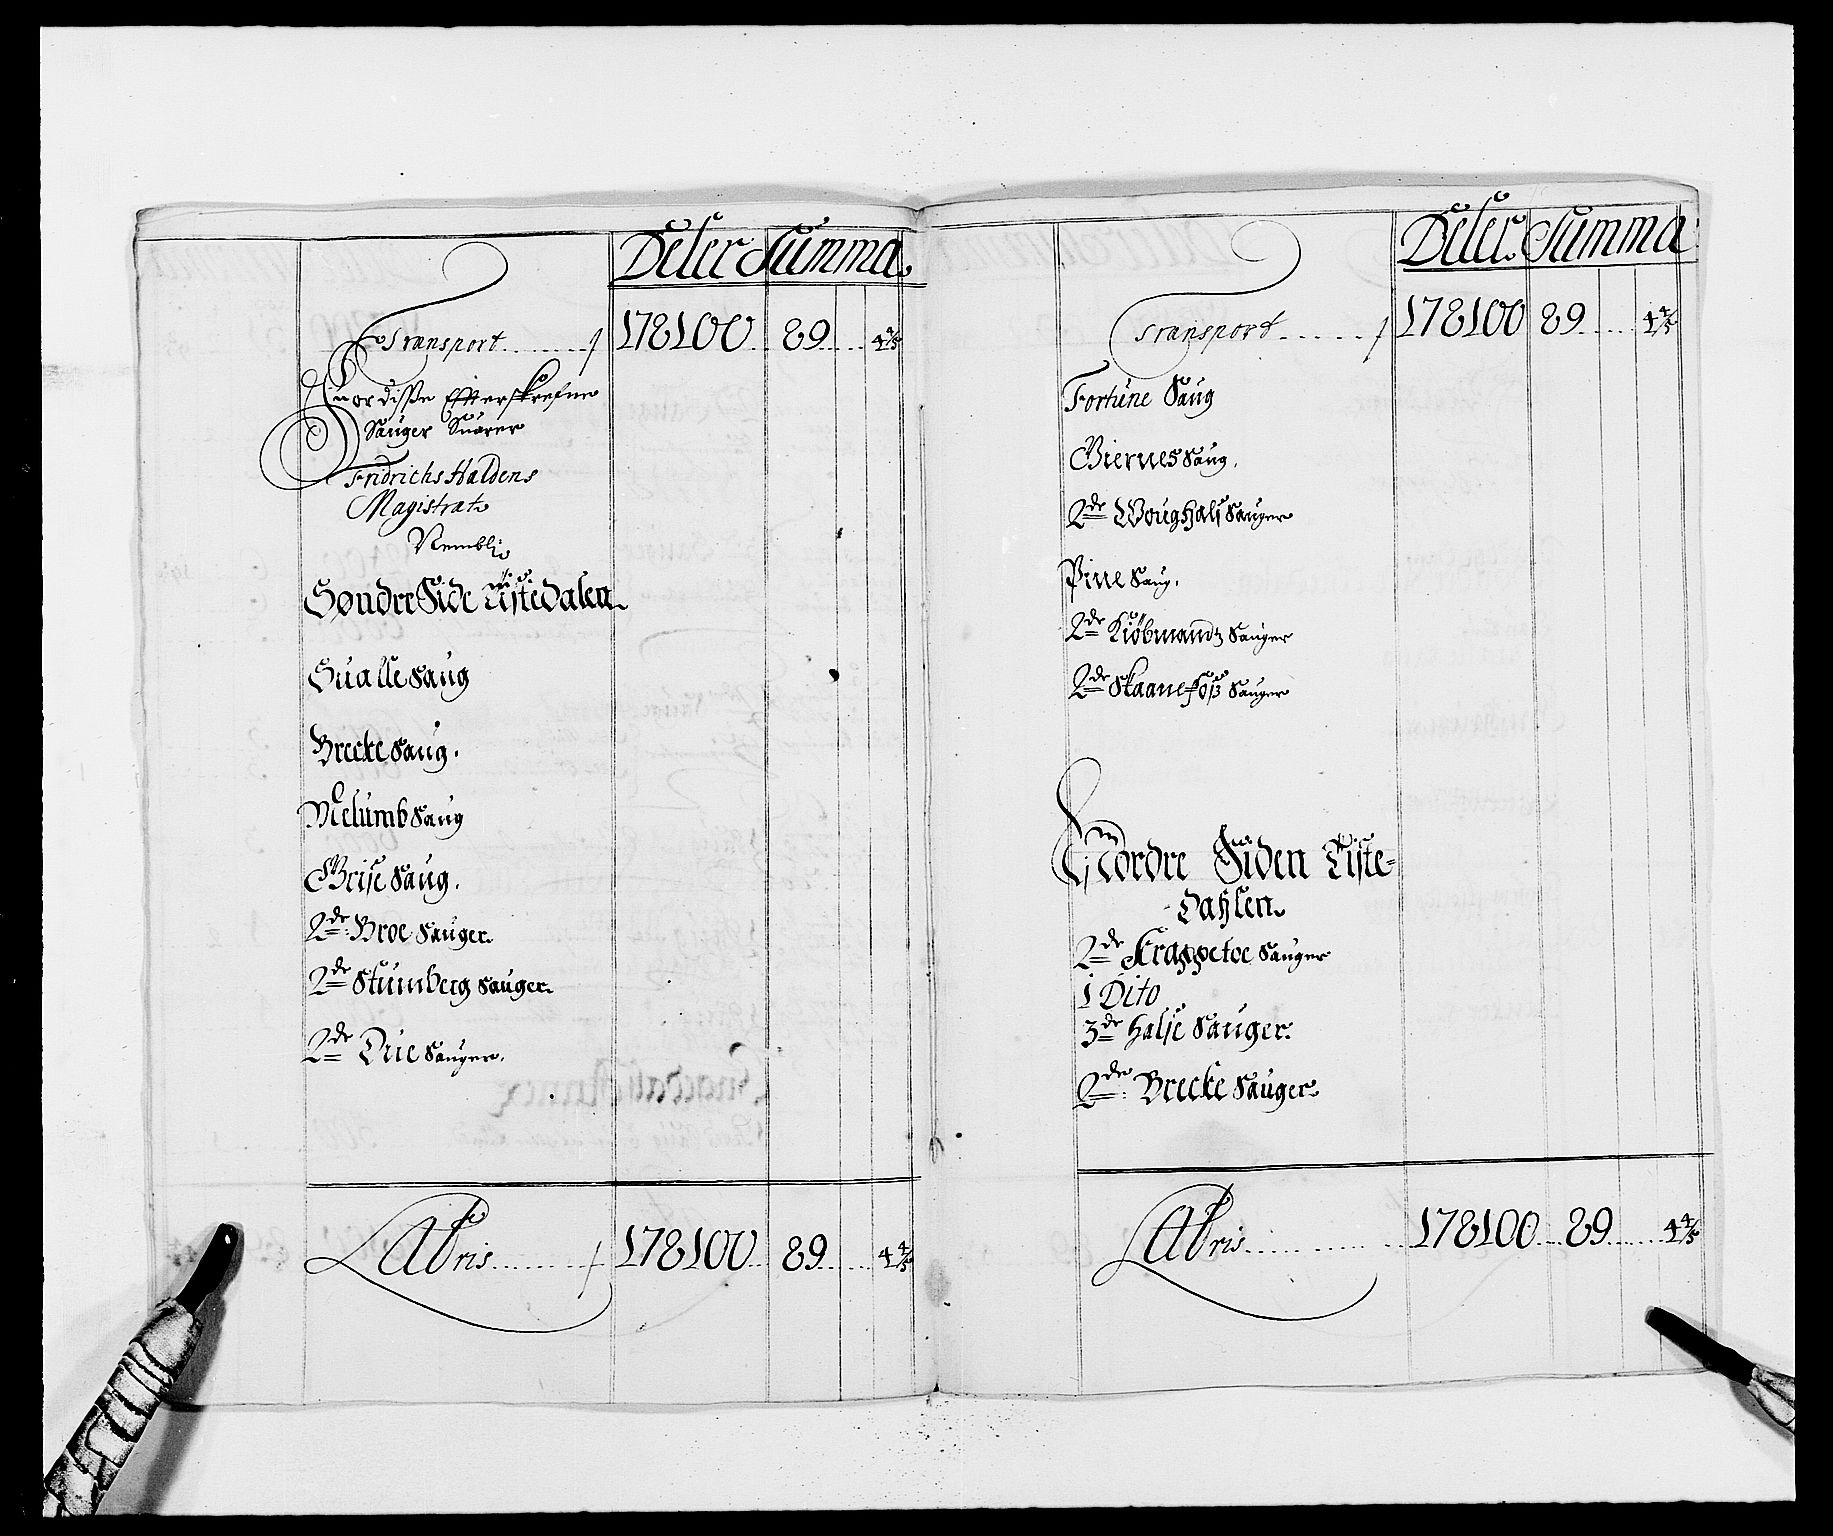 Deler Summa
Transport 178100 89 4 4/5
for disse Effterskrefne
Sauger Suarer
Fridrichs Haldens
Magistrat
Nembl:
Søndre Side Tistedalen
Sualle Saug
Brecke Saug.
Melumb Saug
Grise Saug.
2de Broe Sauger.
2de Stumberg Sauger.
2de Drie Sauger.
LaBris 178100 89 4 4/5
Deler Summa
Transport 178100 89 4 4/5
Fortune Saug
Biernes Saug.
2de Woughals Sauger
Pine Saug.
2de Kiöbmandz Sauger
2de Skaanefoss Sauger
Nordre Siden Tiste=
Dahlen.
2de Krappetoe Sauger
1 Dito
3de Halse Sauger.
2de Brecke Sauger.
LaBris 178100 89 4 4/5